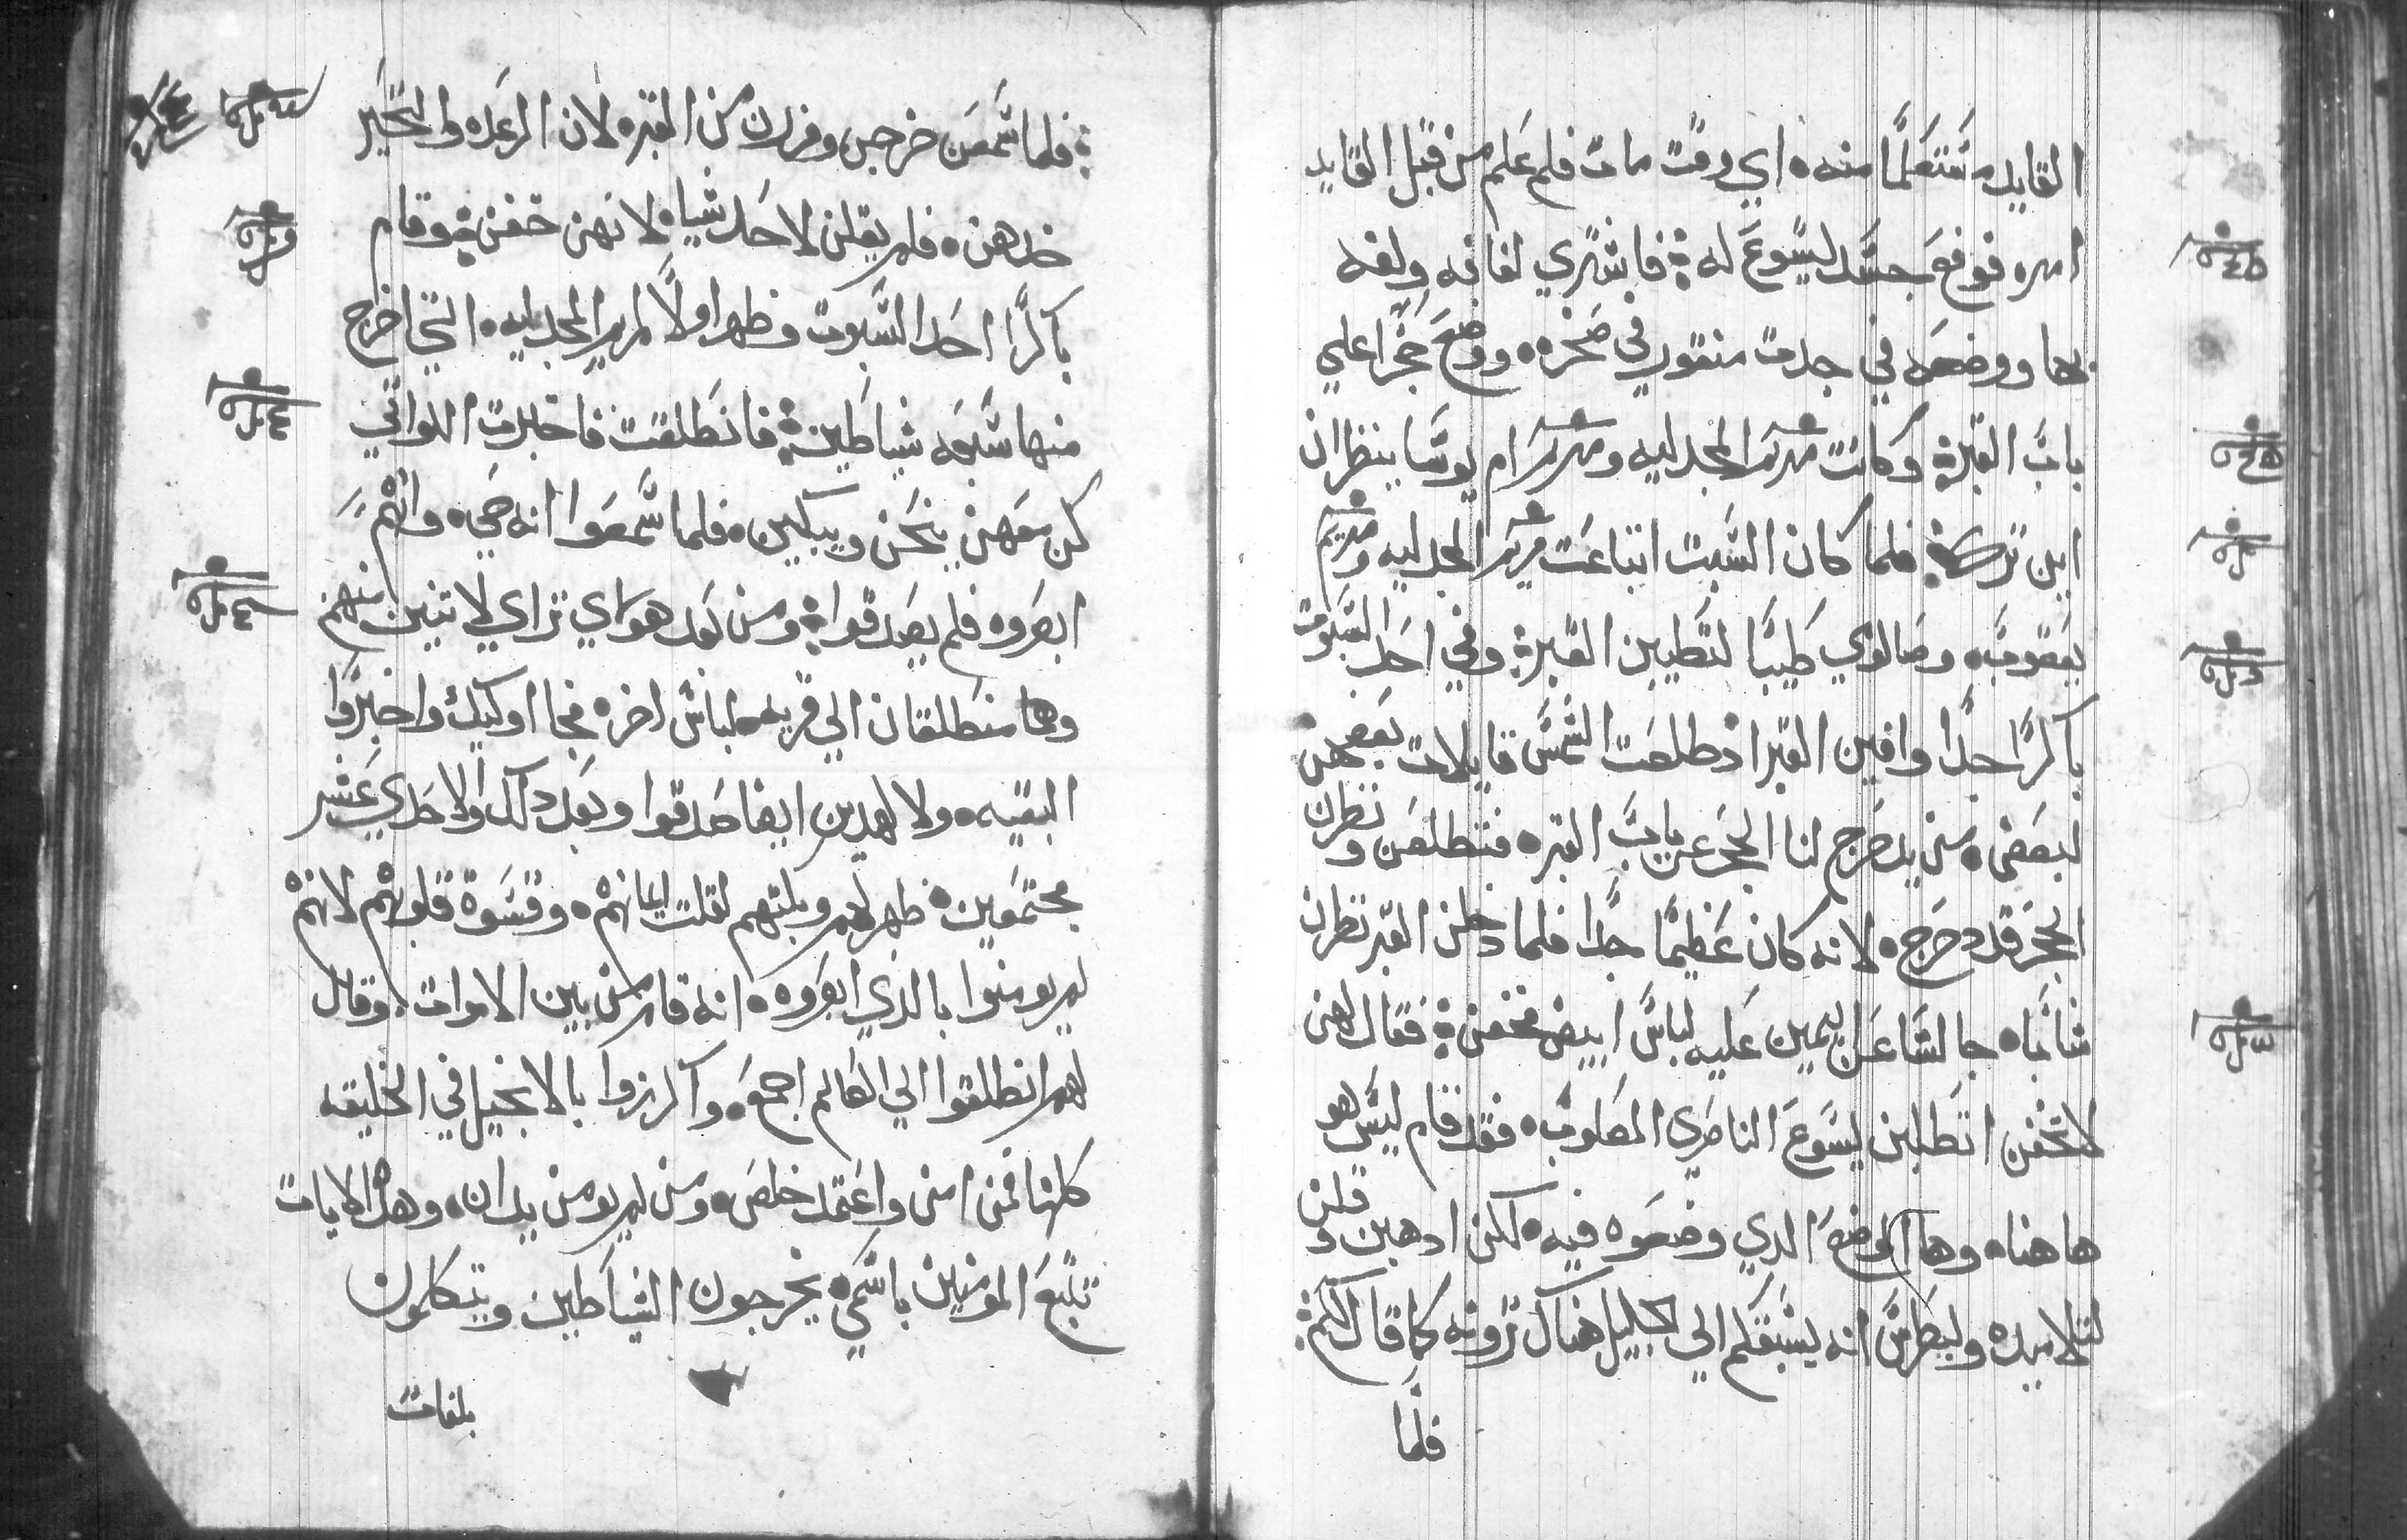 القايد متعلمًا منه اي وقت مات فلم علم من قبل القايد
امره فوضع جسد ليسوع له فاشتري لفافه ولفه
بها ووضعه في جدت منقور في صخره ووضع حجرًا علي
باب القبر وكانت مريم المجدليه ومريم ام يوسا ينظران
اين ترك فلما كان السبت ابتاعت مريم المجدليه ومريم
يعقوب وصالوي طيبًا لتطيبن القبر وفي احد السبوت
باكرًا جدًا وافين القبر اذ طلعت الشمس قايلات بعضهن
لبعض من يدحرج لنا الحجر عن باب القبر فتطلعن ونظرن
الحجر قد دحرج لانه كان عظيمًا جدًا فلما دخلن القبر نظرن
شابًا جالسًا عن اليمين عليه لباس ابيض فخفن فقال لهن
لا تخفن اتطلبن ليسوع الناصري المصلوب فقد قام ليس هو
هاهنا وها الموضع الدي وضعوه فيه لكن ادهبن وقلن
لتلاميده ولبطرس انه يسبقكم الي الجليل هناك ترونه كما قال لكم
فلما
فلما سمعن خرجن وفررن من القبر لان الرعده والتحير
خدهن فلم يقلن لاحد شيا لانهن خفن وقام
باكرًا احد السبوت وظهر اولًا لمريم المجدليه التي اخرج
منها سبعه شياطين فانطلقت فاخبرت اللواتي
كن معهن ينحن ويبكين فلما سمعوا انه حي وانهم
ابصروه فلم يصدقوا ومن بعد هو راي تراي لاتنين منهم
وهما منطلقان الي قريه لباس اخر فجا اوليك واخبروا
البقيه ولا لهدين ايضا صدقوا وبعد دلك والاحدي عشر
مجتمعين ظهر لهم وبكتهم لقلت ايمانهم وقسوة قلوبهم لانهم
لم يومنوا بالدي ابصروه انه قام من بين الاموات وقال
لهم انطلقوا الي العالم اجمع واكرزوا بالانجيل في الخليقه
كلها فمن امن واعتمد خلص ومن لم يومن يدان وهده الايات
تتبع المومنين باسمي يخرجون الشياطين ويتكلمون
بلغات